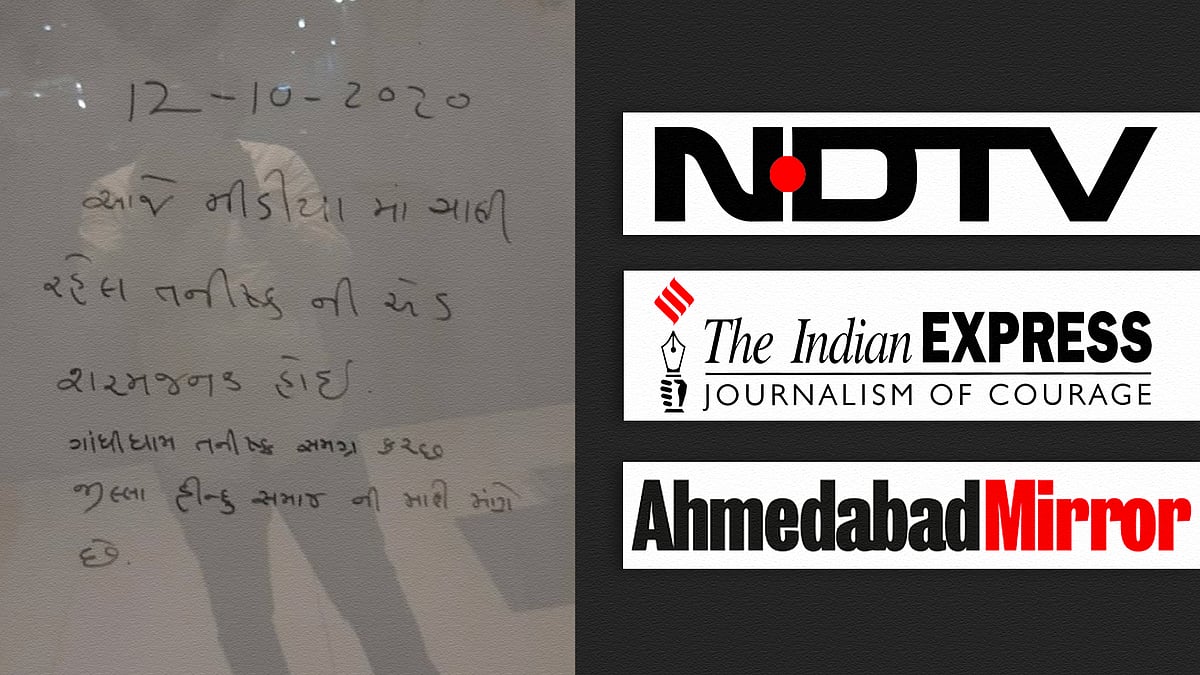 12-10-2020
આજે મીડીયા માં ચાલી
રહેલ તનીષ્ક ની એડ
શરમજનક હોઇ.
ગાંધીધામ તનીષ્ક સમગ્ર કચ્છ
જીલ્લા હીન્દુ સમાજ ની માફી માંગે
છે.
NDTV
The Indian EXPRESS
JOURNALISM OF COURAGE
AhmedabadMirror